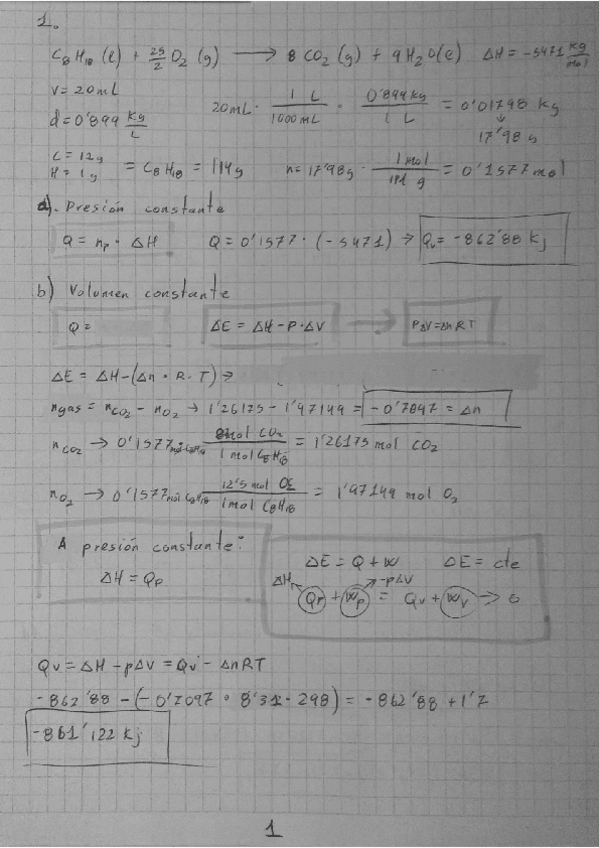 1.
C₈H₁₈ (l) + 25/2 O₂ (g) ⟶ 8 CO₂ (g) + 9 H₂O(l) ΔH = -5471 kg/mol
V = 20mL
20mL · 1 L / 1000 mL · 0'899 kg / 1 L = 0'01798 kg
d = 0'899 kg/L
↓
17'98 g
C = 12g
H = 1g
= C₈H₁₈ = 114g n = 17'98g · 1 mol / 114 g = 0'1577 mol
a). Presión constante
Q = nₚ · ΔH Q = 0'1577 · (-5471) → Qᵥ = -862'88 kj
b) Volumen constante
Q = ΔE = ΔH - P·ΔV ⟶ PΔV = ΔnRT
ΔE = ΔH - (Δn · R · T) →
ngas = nCO₂ - nO₂ → 1'26175 - 1'97149 = -0'7097 = Δn
nCO₂ → 0'1577 mol C₈H₁₈ · 8mol CO₂ / 1 mol C₈H₁₈ = 1'26175 mol CO₂
nO₂ → 0'1577 mol C₈H₁₈ · 12'5 mol O₂ / 1 mol C₈H₁₈ = 1'97149 mol O₂
A presión constante:
ΔH = Qₚ
ΔE = Q + W ΔE = cte
ΔH -pΔV
Qₚ + Wₚ = Qᵥ + Wᵥ → 0
Qᵥ = ΔH - pΔV = Qᵥ - ΔnRT
-862'88 - (-0'7097 · 8'31 · 298) = -862'88 + 1'7
-861'122 kj
1